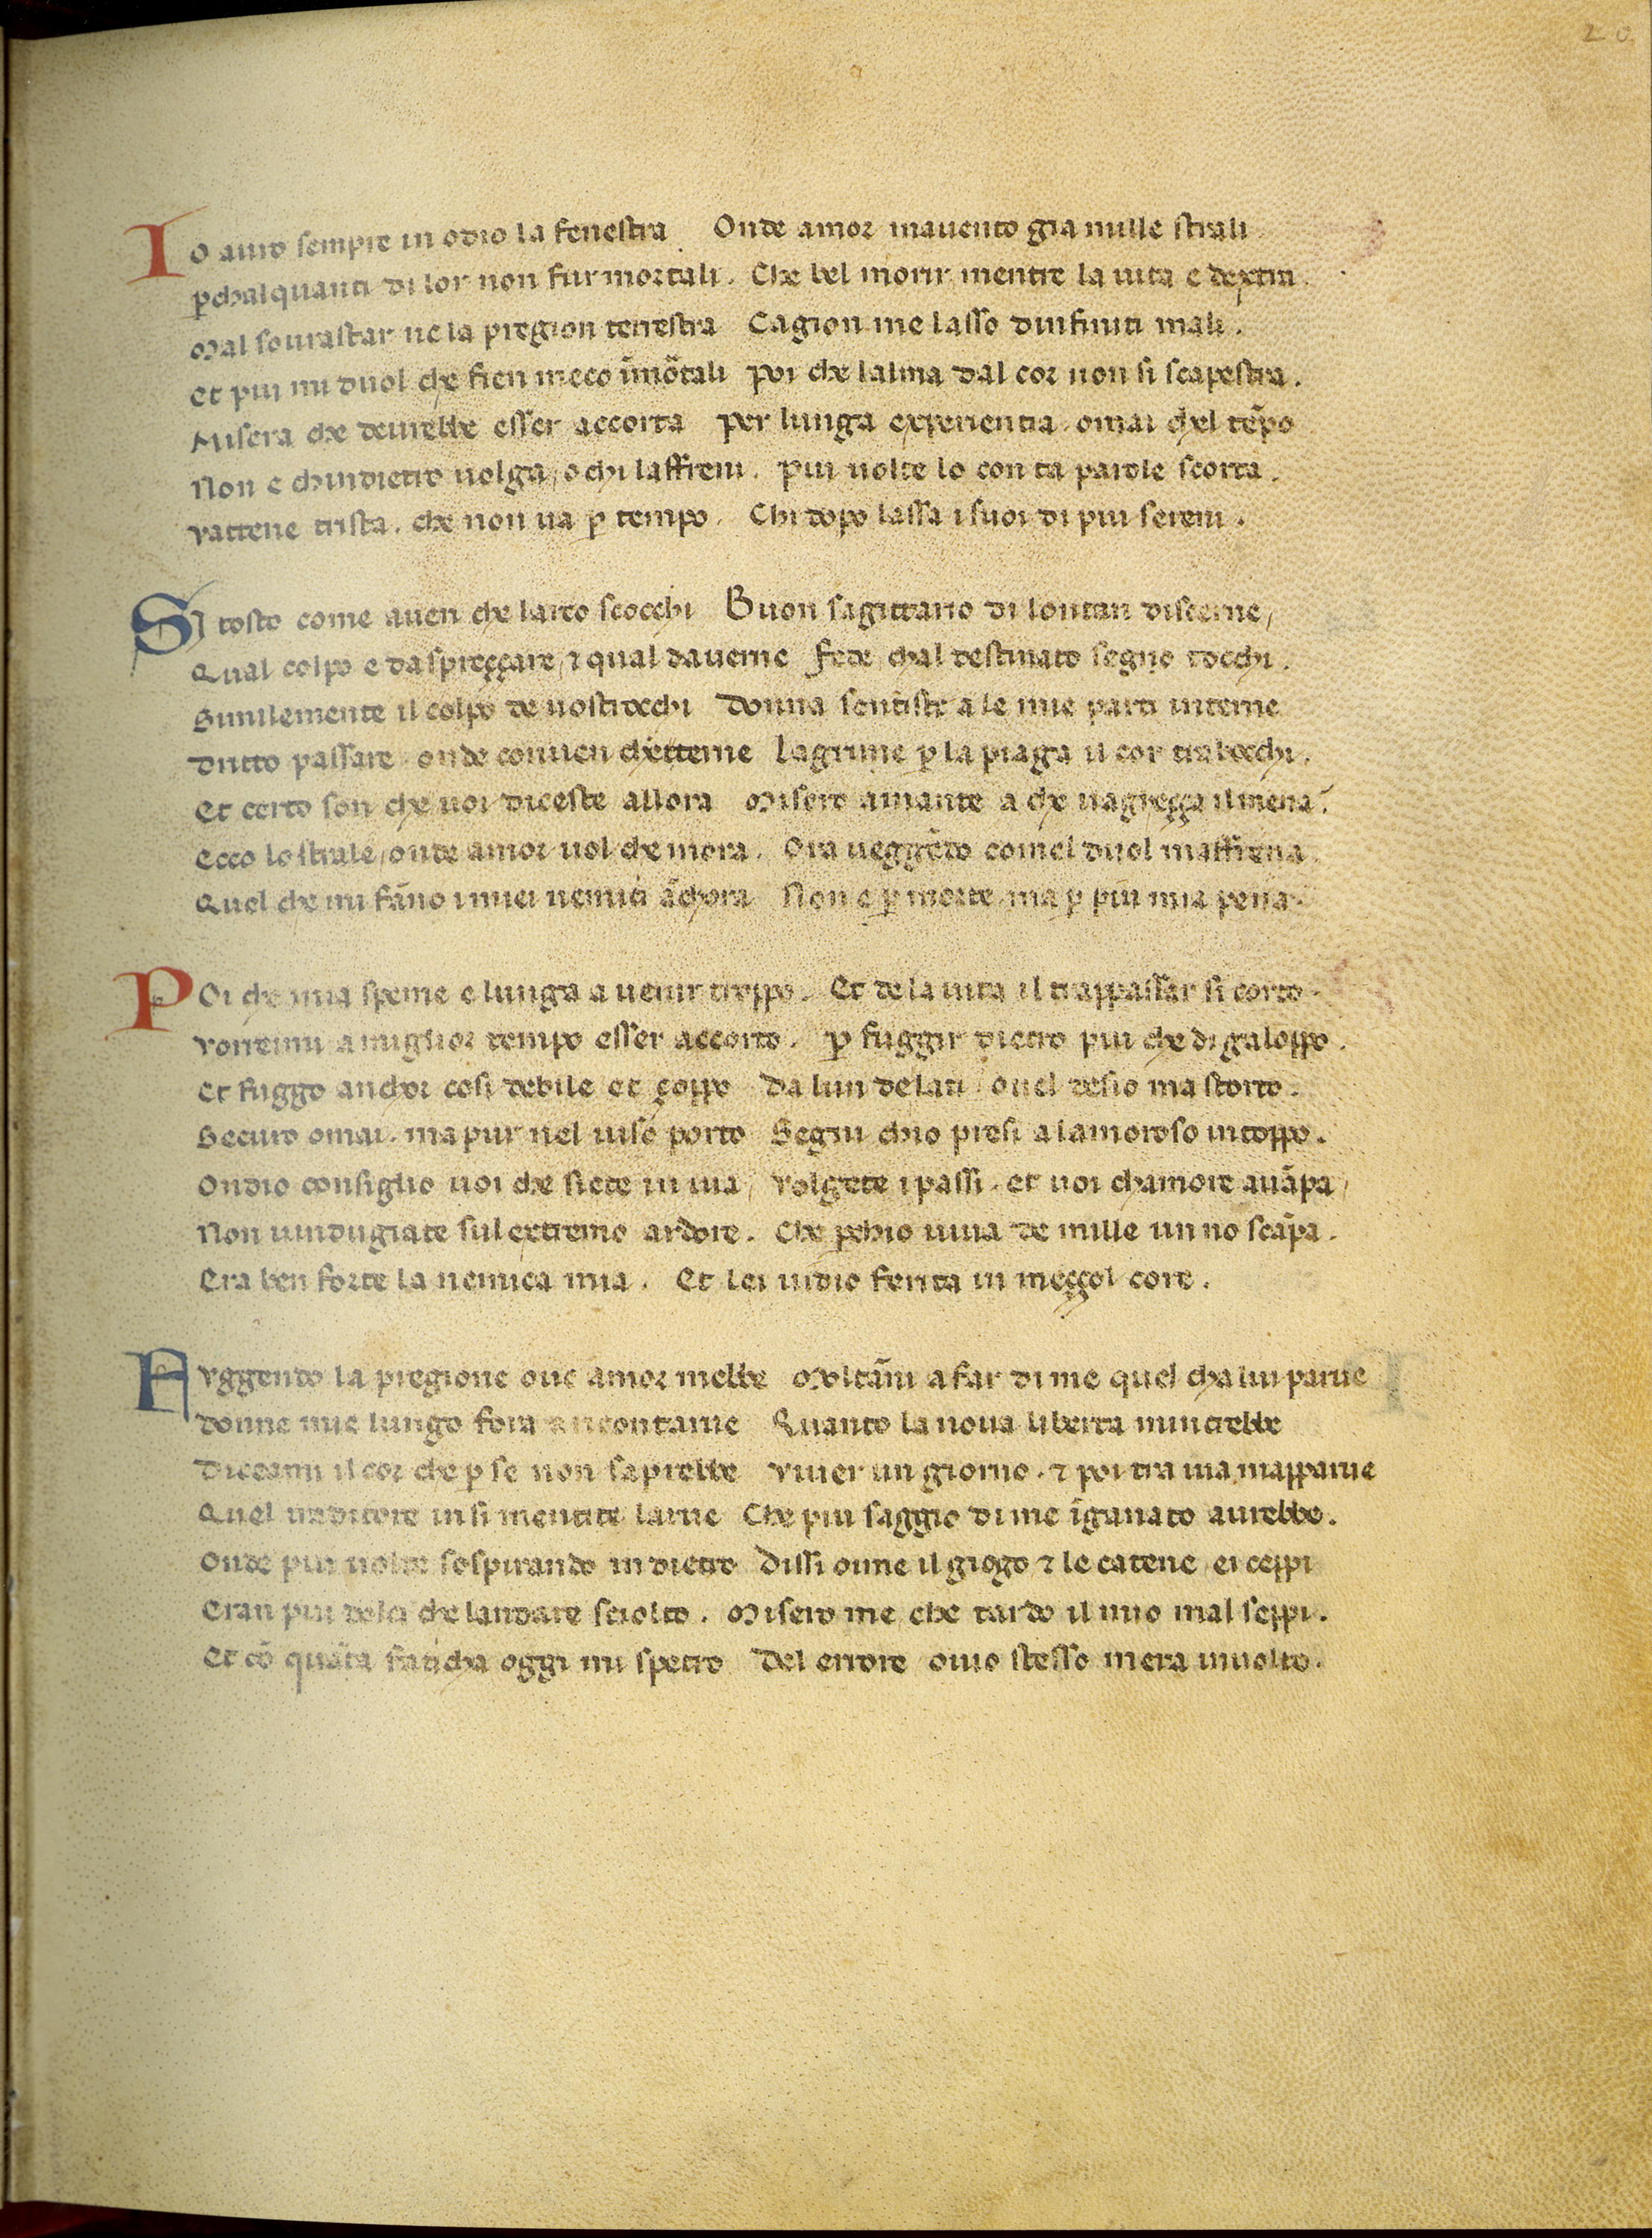 20
Io auro sempre in odio la fenestra Onde amor mauento gia mille strali
p̱chalquanti di lor non fur mortali. Che bel morir mentre la uita e dextra.
Mal sourastar ne la pregion terrestra Cagion me lasso dinfiniti mali.
Et piu mi duol che fien meco īmōtali poi che lalma dal cor non si scapestra.
Misera che deurebbe esser accorta per lunga experientia omai chel tēpo
Non e chindietro uolga, o chi laffreni. piu uolte lo con ta parole scorta.
Vattene trista. che non ua p̱ tempo. Chi dopo lassa i suoi di piu sereni.
SI tosto come auen che larco scocchi Buon sagittario di lontan discerne/
Qual colpo e da spreççare, ⁊ qual dauerne Fede chal destinato segno tocchi.
Similemente il colpo de uostrocchi Donna sentiste a le mie parti interne
Dritto passare onde conuen chetterne Lagrime p̱ la piaga il cor trabocchi.
Et certo son che uoi diceste allora Misero amante a che uagheçça il mena?
Ecco lo strale/onde amor uol che mora. Ora ueggēdo comel duol maffrena.
Quel che mi fāno i miei nemici āchora Non e p̱ morte. ma p̱ piu mia pena.
POi che mia speme e lunga a uenir troppo. Et de la uita il trappassar si corto.
Vorreimi a miglior tempo esser accorto. p̱ fuggir dietro piu che di galoppo.
Et fuggo anchor cosi debile et çoppo Da lun de lati ouel desio ma storto.
Securo omai. ma pur nel uiso porto Segni chio presi a lamoroso intoppo.
Ondio consiglio uoi che siete in uia/ Volgete i passi. et uoi chamore auāpa/
Non uindugiate sul extremo ardore. Che p̱chio uiua de mille un no scāpa.
Era ben forte la nemica mia. Et lei uidio ferita in meççol core.
FVggendo la pregione oue amor mebbe Moltāni a far di me quel cha lui parue
Donne mie lungo fora a ricontarue Quanto la noua liberta mincrebbe
Diceami il cor che p̱ se non saprebbe Viuer un giorno. ⁊ poi tra uia mapparue
Quel traditore in si mentite larue Che piu saggio di me īgannato aurebbe.
Onde piu uolte sospirando in dietro Dissi oime il giogo ⁊ le catene ei ceppi
Eran piu dolci che landare sciolto. Misero me che tardo il mio mal seppi.
Et cō quāta faticha oggi mi spetro Del errore ouio stesso mera inuolto.